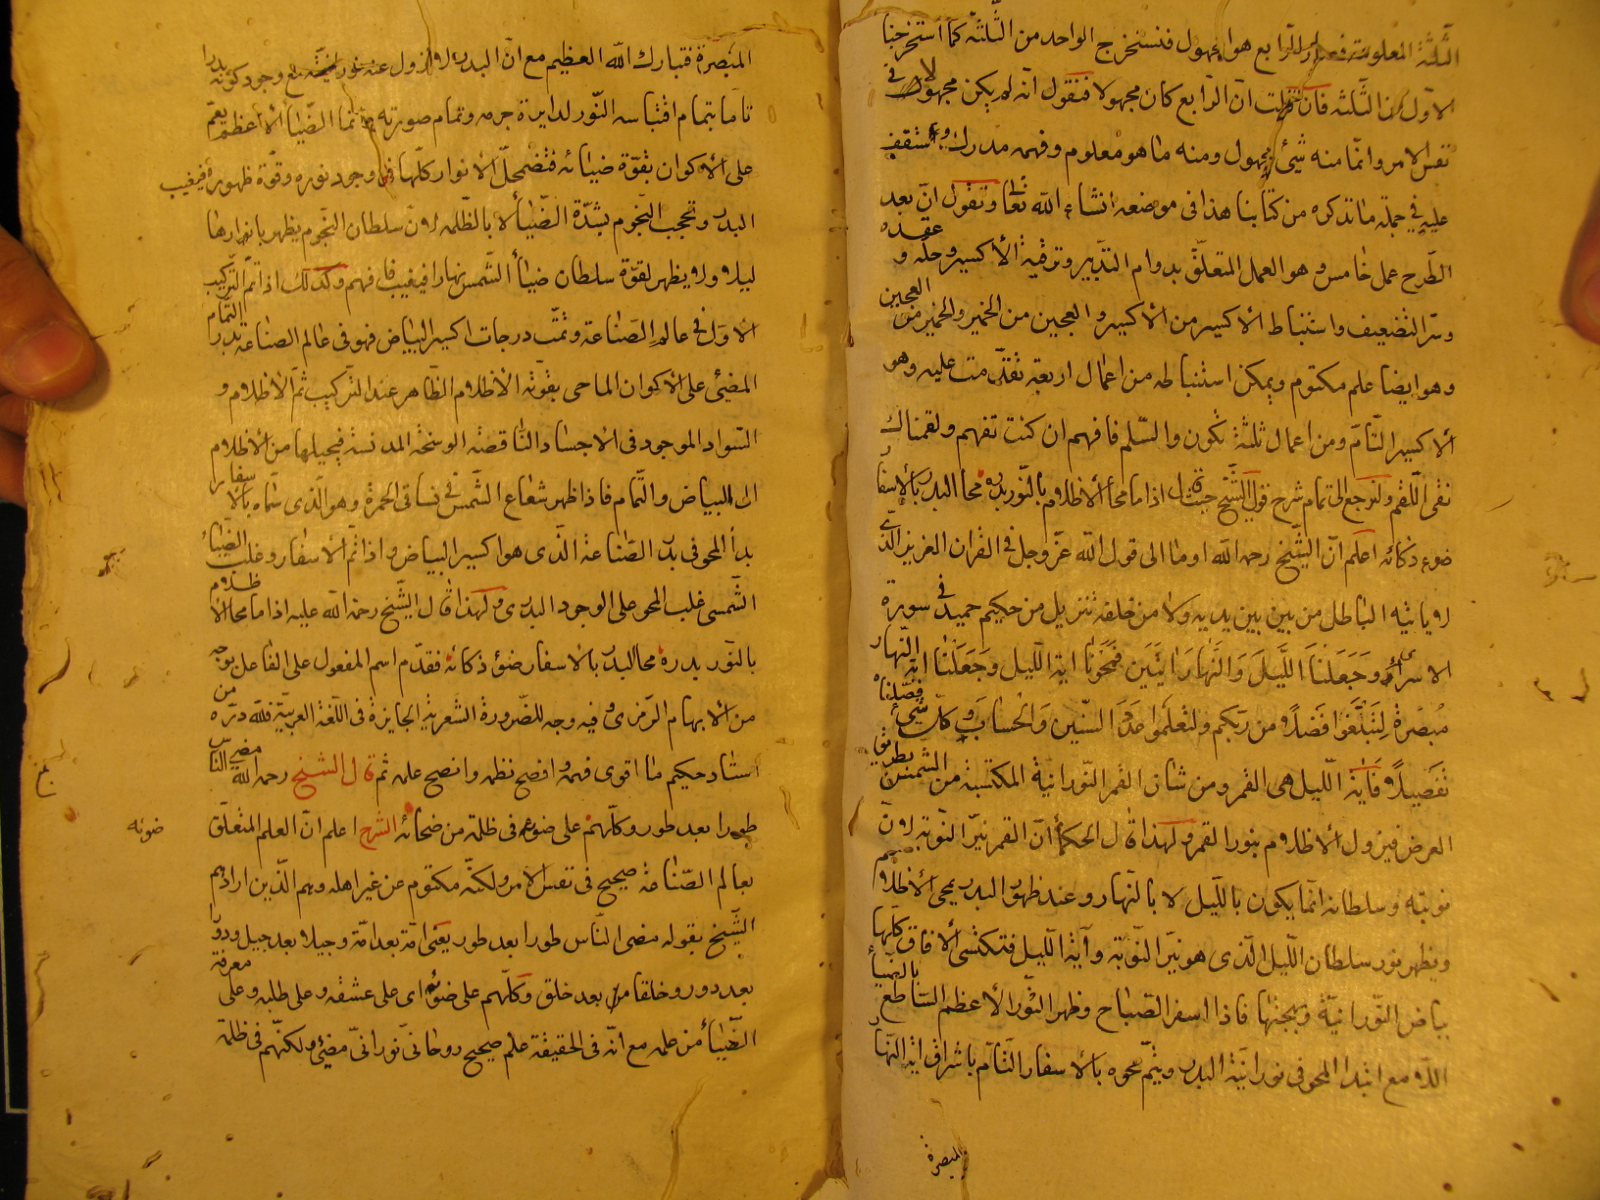 الثلثة المعلومة الرابع هو المجهول فنستخرج الواحد من الثلثة كما استخرجنا
الاول من الثلثة فان قلت ان الرابع كان مجهولا فنقول انه لم يكن مجهولا في
نفس الامر وانما منه شئ مجهول ومنه ما هو معلوم وفهمه مدرك وستقف
عليه في جملة ما نذكره من كتابنا هذا في موضعه انشاء الله تعالى ونقول ان بعد
الطرح عمل خامس وهو العمل المتعلق بدوام التدبير وترقية الاكسير وحله وعقده
وسر التضعيف واستنباط الاكسير من الاكسير والعجين من الخمير والخمير من العجين
وهو ايضا علم مكتوم ويمكن استنباطه من اعمال اربعة تقدمت عليه وهو
الاكسير التام ومن اعمال ثلثة تكون والسلم فافهم ان كنت تفهم ولقمناك
نقى اللقم ولنرجع الى تمام شرح قول الشيخ حيث قال اذا ما محا الاظلام بالنور بدره محا البدر بالاسفار
ضوء ذكائه اعلم ان الشيخ رحمه الله اوما الى قول الله عز وجل في القران العزيز الذي
لا ياتيه الباطل من بين بين يديه ولا من خلفه تنزيل من حكيم حميد في سورة
الاسراء وجعلنا الليل والنهار ايتين فمحونا اية الليل وجعلنا اية النهار
مبصرة لتبتغوا فضلا من ربكم ولتعلموا عدد السنين والحساب وكل شئ فصلناه
تفصيلا فاية الليل هي القمر ومن شان القمر النورانية المكتسبة من الشمس بطريق
العرض فيزول الاظلام بنور القمر ولهذا قال الحكماء ان القمر نير النوبة لان
نوبته وسلطانه انما يكون بالليل لا بالنهار وعند ظهور البدر يمحى الاظلام
ويظهر نور سلطان الليل الذى هو نير النوبة وآية الليل فتكتسى الافاق كلها
بياض النورانية وبهجتها فاذا اسفر الصباح وظهر النور الاعظم الساطع بالضياء
اللامع ابتدا المحو في نورانية البدر ويتم محوه بالاسفار التام باشراق اية النهار
المبصرة
المبصرة فتبارك الله العظيم مع ان البدر لا يزول عنه مع وجود كونه بدرا
تاما بتمام اقتباسه النور لدايرة جرمه وتمام صورته وانما الضياء الاعظم يعم
على الاكوان بقوة ضيائه فتضمحل الانوار كلها في وجود نوره وقوة ظهوره فيغيب
البدر وتحجب النجوم بشدة الضياء لا بالظلمة لان سلطان النجوم يظهر بانوارها
ليلا ولا يظهر لقوة سلطان ضياء الشمس نهارا فيغيب فافهم وكذلك اذا تم التركيب
الاول في عالم الصناعة وتمت درجات اكسير البياض فهو في عالم الصناعة بدر التمام
المضئ على الاكوان الماحى بقوته الاظلام الظاهر عند التركيب ثم الاظلام و
السواد الموجود في الاجساد الناقصة الوسخة المدنسة فيحيلها من الاظلام
الى البياض والتمام فاذا ظهر شعاع الشمس في نسا في الحمرة وهو الذى سماه بالاسفار
بدأ المحو في بدر الصناعة الذى هو اكسير البياض واذا تم الاسفار وغلب الضياء
الشمسى غلب المحو على الوجود البدرى ولهذا قال الشيخ رحمة الله عليه اذا ما محا الاظلام
بالنور بدره محا البدر بالاسفار ضوء ذكائه فقدم اسم المفعول على الفاعل بوجه
من الابهام الرمزى وفيه وجه للضرورة الشعرية الجايزة في اللغة العربية فلله دره من
استاد حكيم ما اقوى فهمه وافصح نظمه وانصح علمه ثم قال الشيخ رحمه الله مضى الناس
طورا بعد طور وكلهم على ضوئه في ظلمة من ضحائه الشرح اعلم ان العلم المتعلق
ضوئه
بعالم الصناعة صحيح في نفس الامر ولكنه مكتوم عن غير اهله وهم الذين ارادهم
الشيخ بقوله مضى الناس طورا بعد طور يعنى امة بعد امة وجيلا بعد جيل ودورا
بعد دور وخلقا من بعد خلق وكلهم على ضوئه اى على عشقه وعلى طلبه وعلى معرفة
الضياء من علمه مع انه في الحقيقة علم صحيح روحانى نورانى مضئ ولكنهم في ظلمة